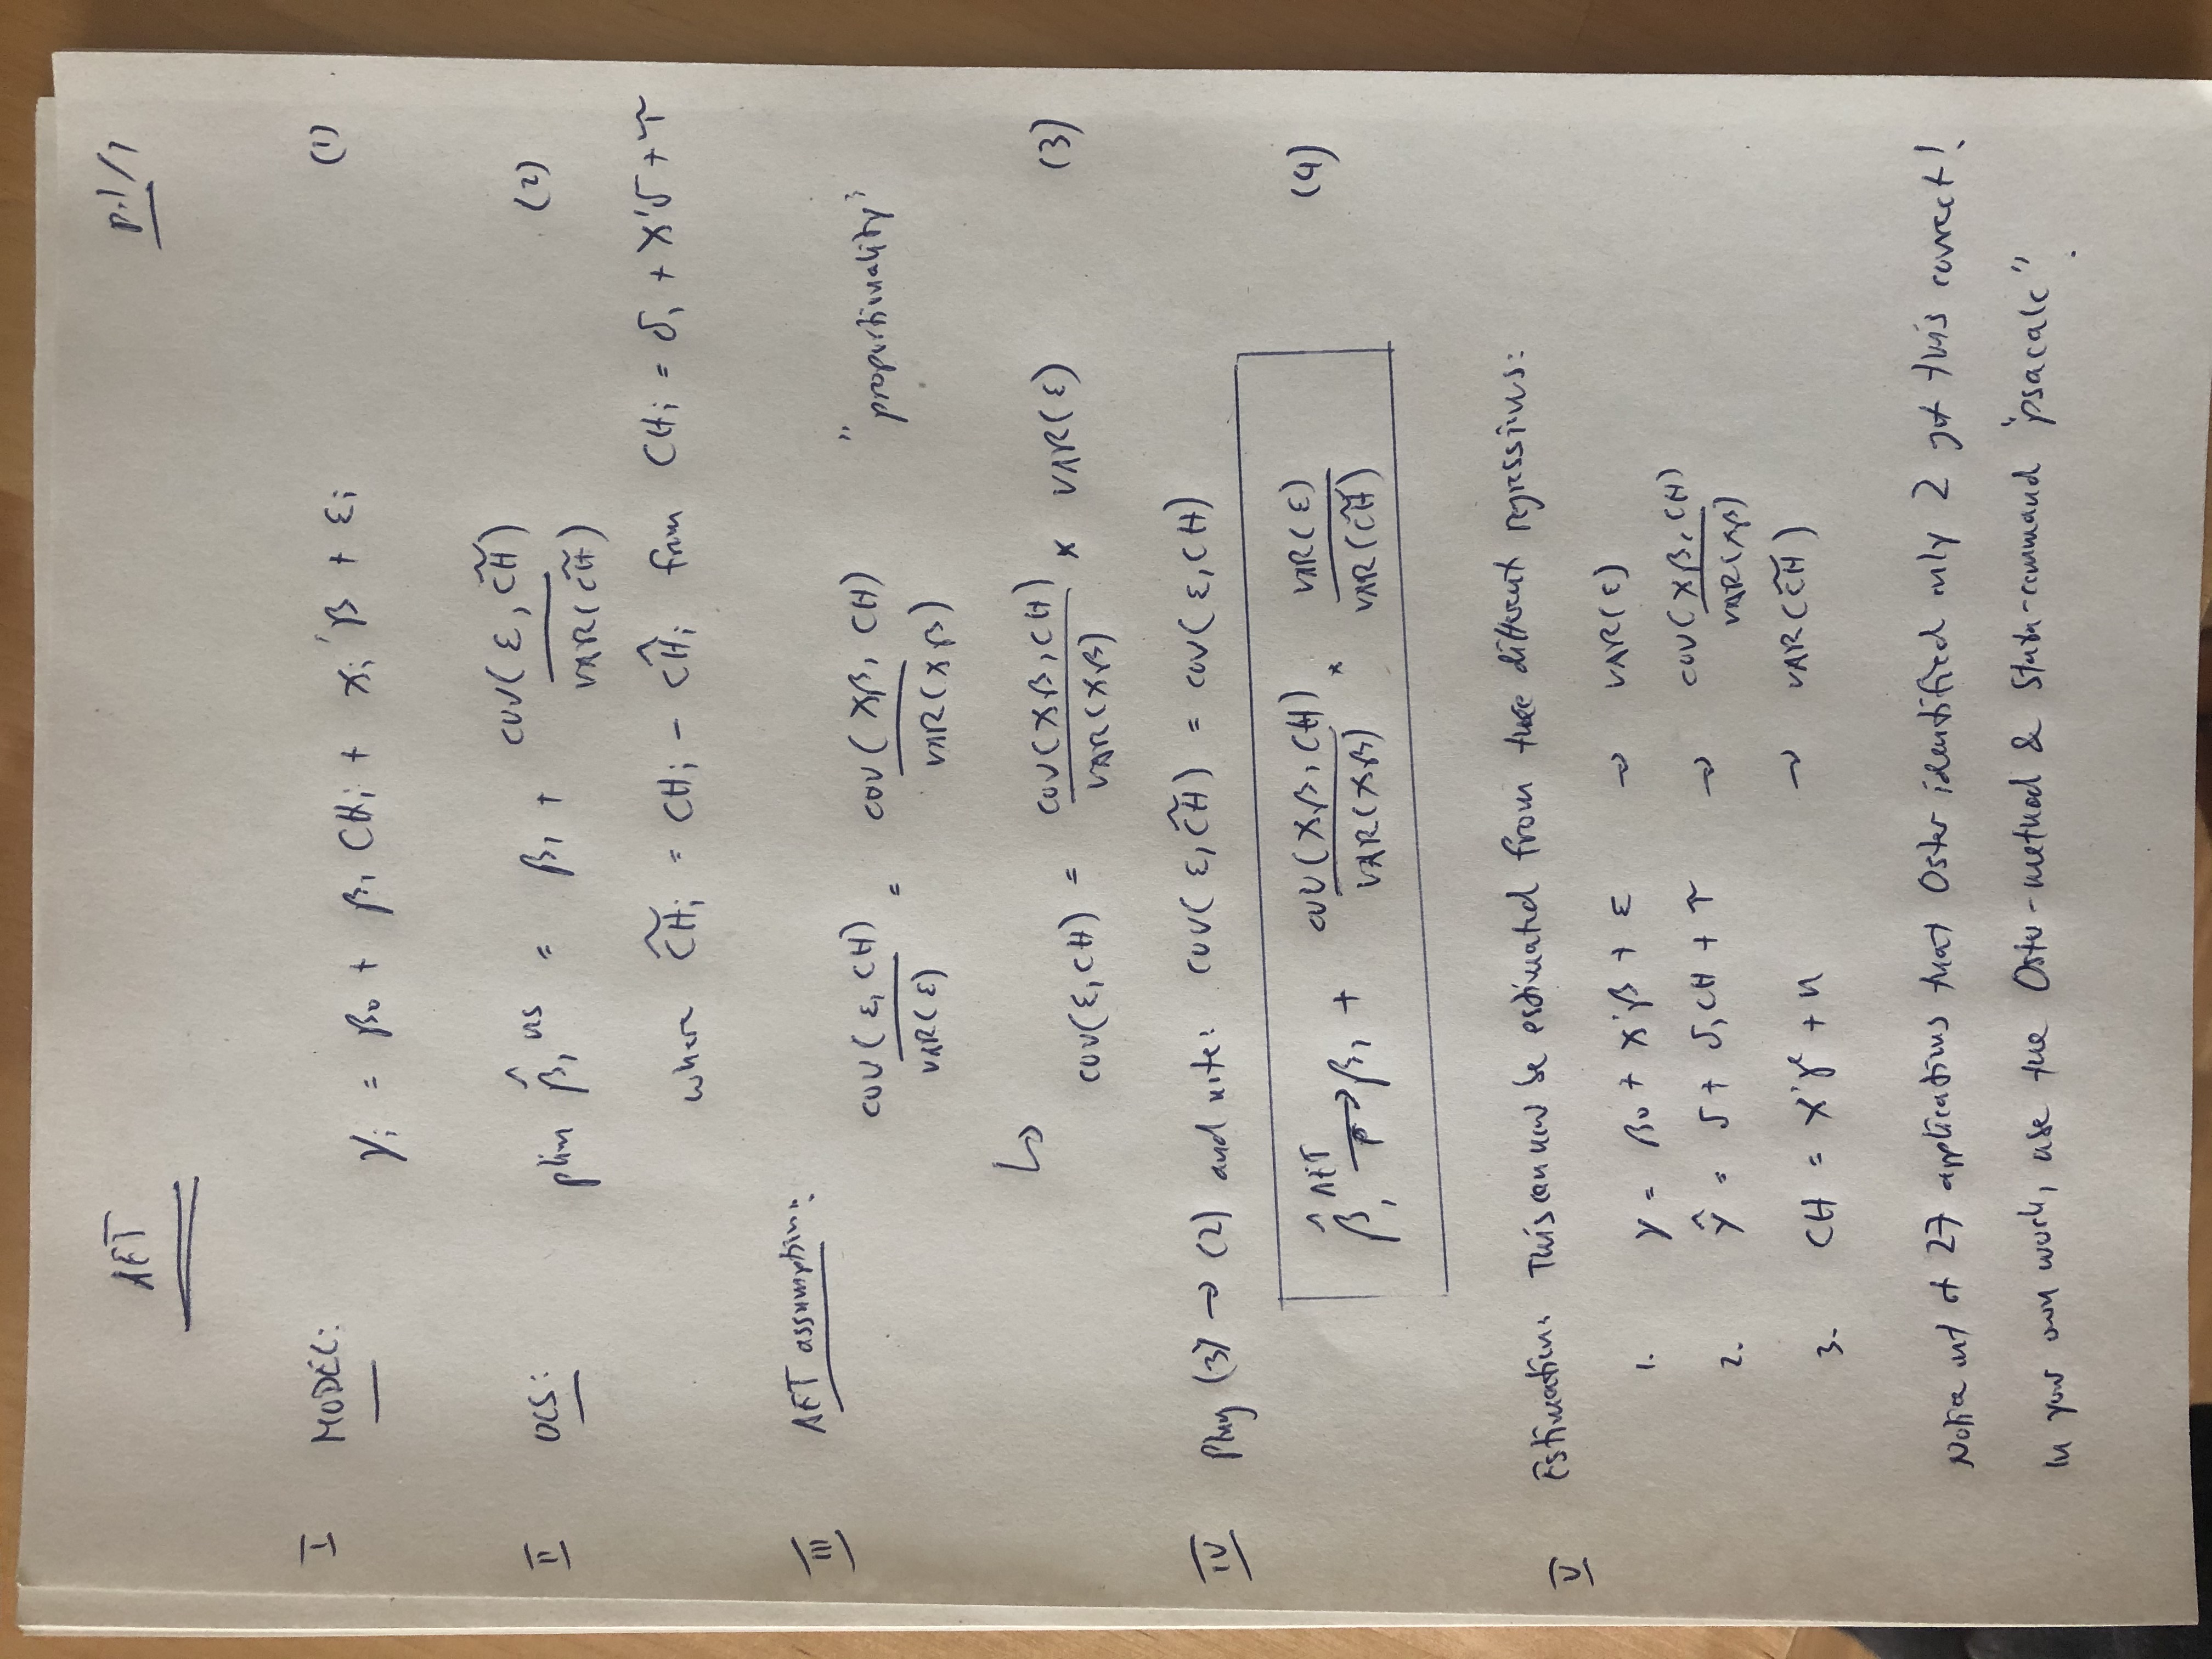 AET p.1/1
I MODEL: Yi = β0 + β1 CHi + Xi'β + εi (1)
II OLS: plim β̂1 = β1 + COV(ε, C͂H) / VAR(C͂H) (2)
where C͂Hi = CHi - ĈHi from CHi = δ1 + X'δ + T
III AET assumption:
COV(ε, CH) / VAR(ε) = COV(Xβ, CH) / VAR(Xβ) "proportionality"
↳ COV(ε, CH) = COV(Xβ, CH) / VAR(Xβ) × VAR(ε) (3)
IV Plug (3) → (2) and note: COV(ε, C͂H) = COV(ε, CH)
β̂1 AET →p β1 + COV(Xβ, CH) / VAR(Xβ) * VAR(ε) / VAR(C͂H) (4)
V Estimation: This can now be estimated from three different regressions:
1. Y = β0 + X'β + ε → VAR(ε)
2. Ŷ = δ + δ1 CH + T → COV(Xβ, CH) / VAR(Xβ)
3. CH = X'γ + u → VAR(C͂H)
Notice out of 27 applications that Oster identified only 2 got this correct!
In your own work, use the Oster-method & Stata-command "psacalc".